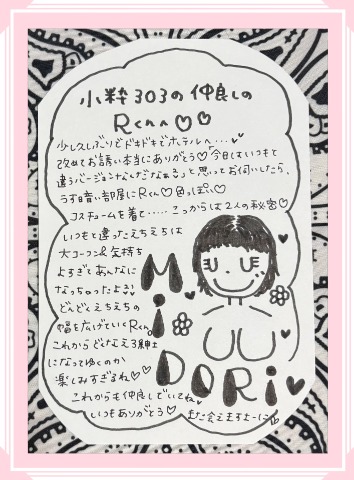 小粋303の仲良しの
Rくんへ♡♡
少し久しぶりでドキドキでホテルへ…
改めてお誘い本当にありがとう♡今日はいつもと
違うバージョンなんだなぁと思ってお伺いしたら、
うす暗い部屋にRくん♡色っぽい♡
コスチュームを着て……こっからは2人の秘密♡
いつもと違ったえちえちは
大コーフン&気持ち
よすぎてあんなに
なっちゃったよ
どんどんえちえちの
幅を広げていくRくん。
これからどなえろ紳士
になってゆくのか
楽しみすぎるね♡♡
これからも仲良しでいてね
いつもありがとう♡
また会えますよーに
MiDORi